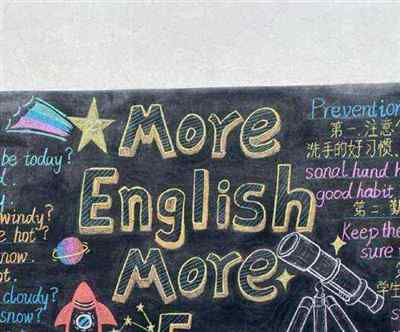 More
English
More
be today?
windy?
be hot?
now.
cloudy?
snow?
Prevention
第一.注意个
洗手的好习惯
sonal hand h
good habit
第二.勤
keep the
sure
学生